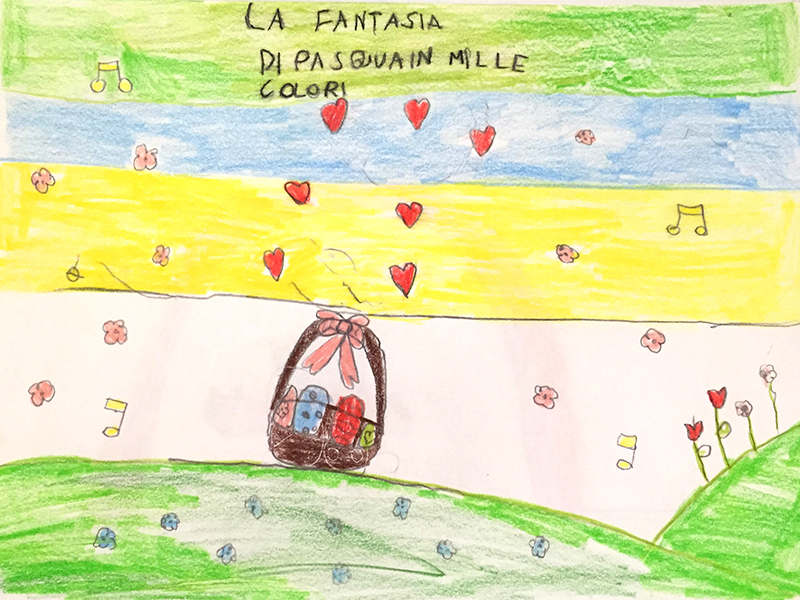 LA FANTASIA
DI PASQUAIN MILLE
COLORI